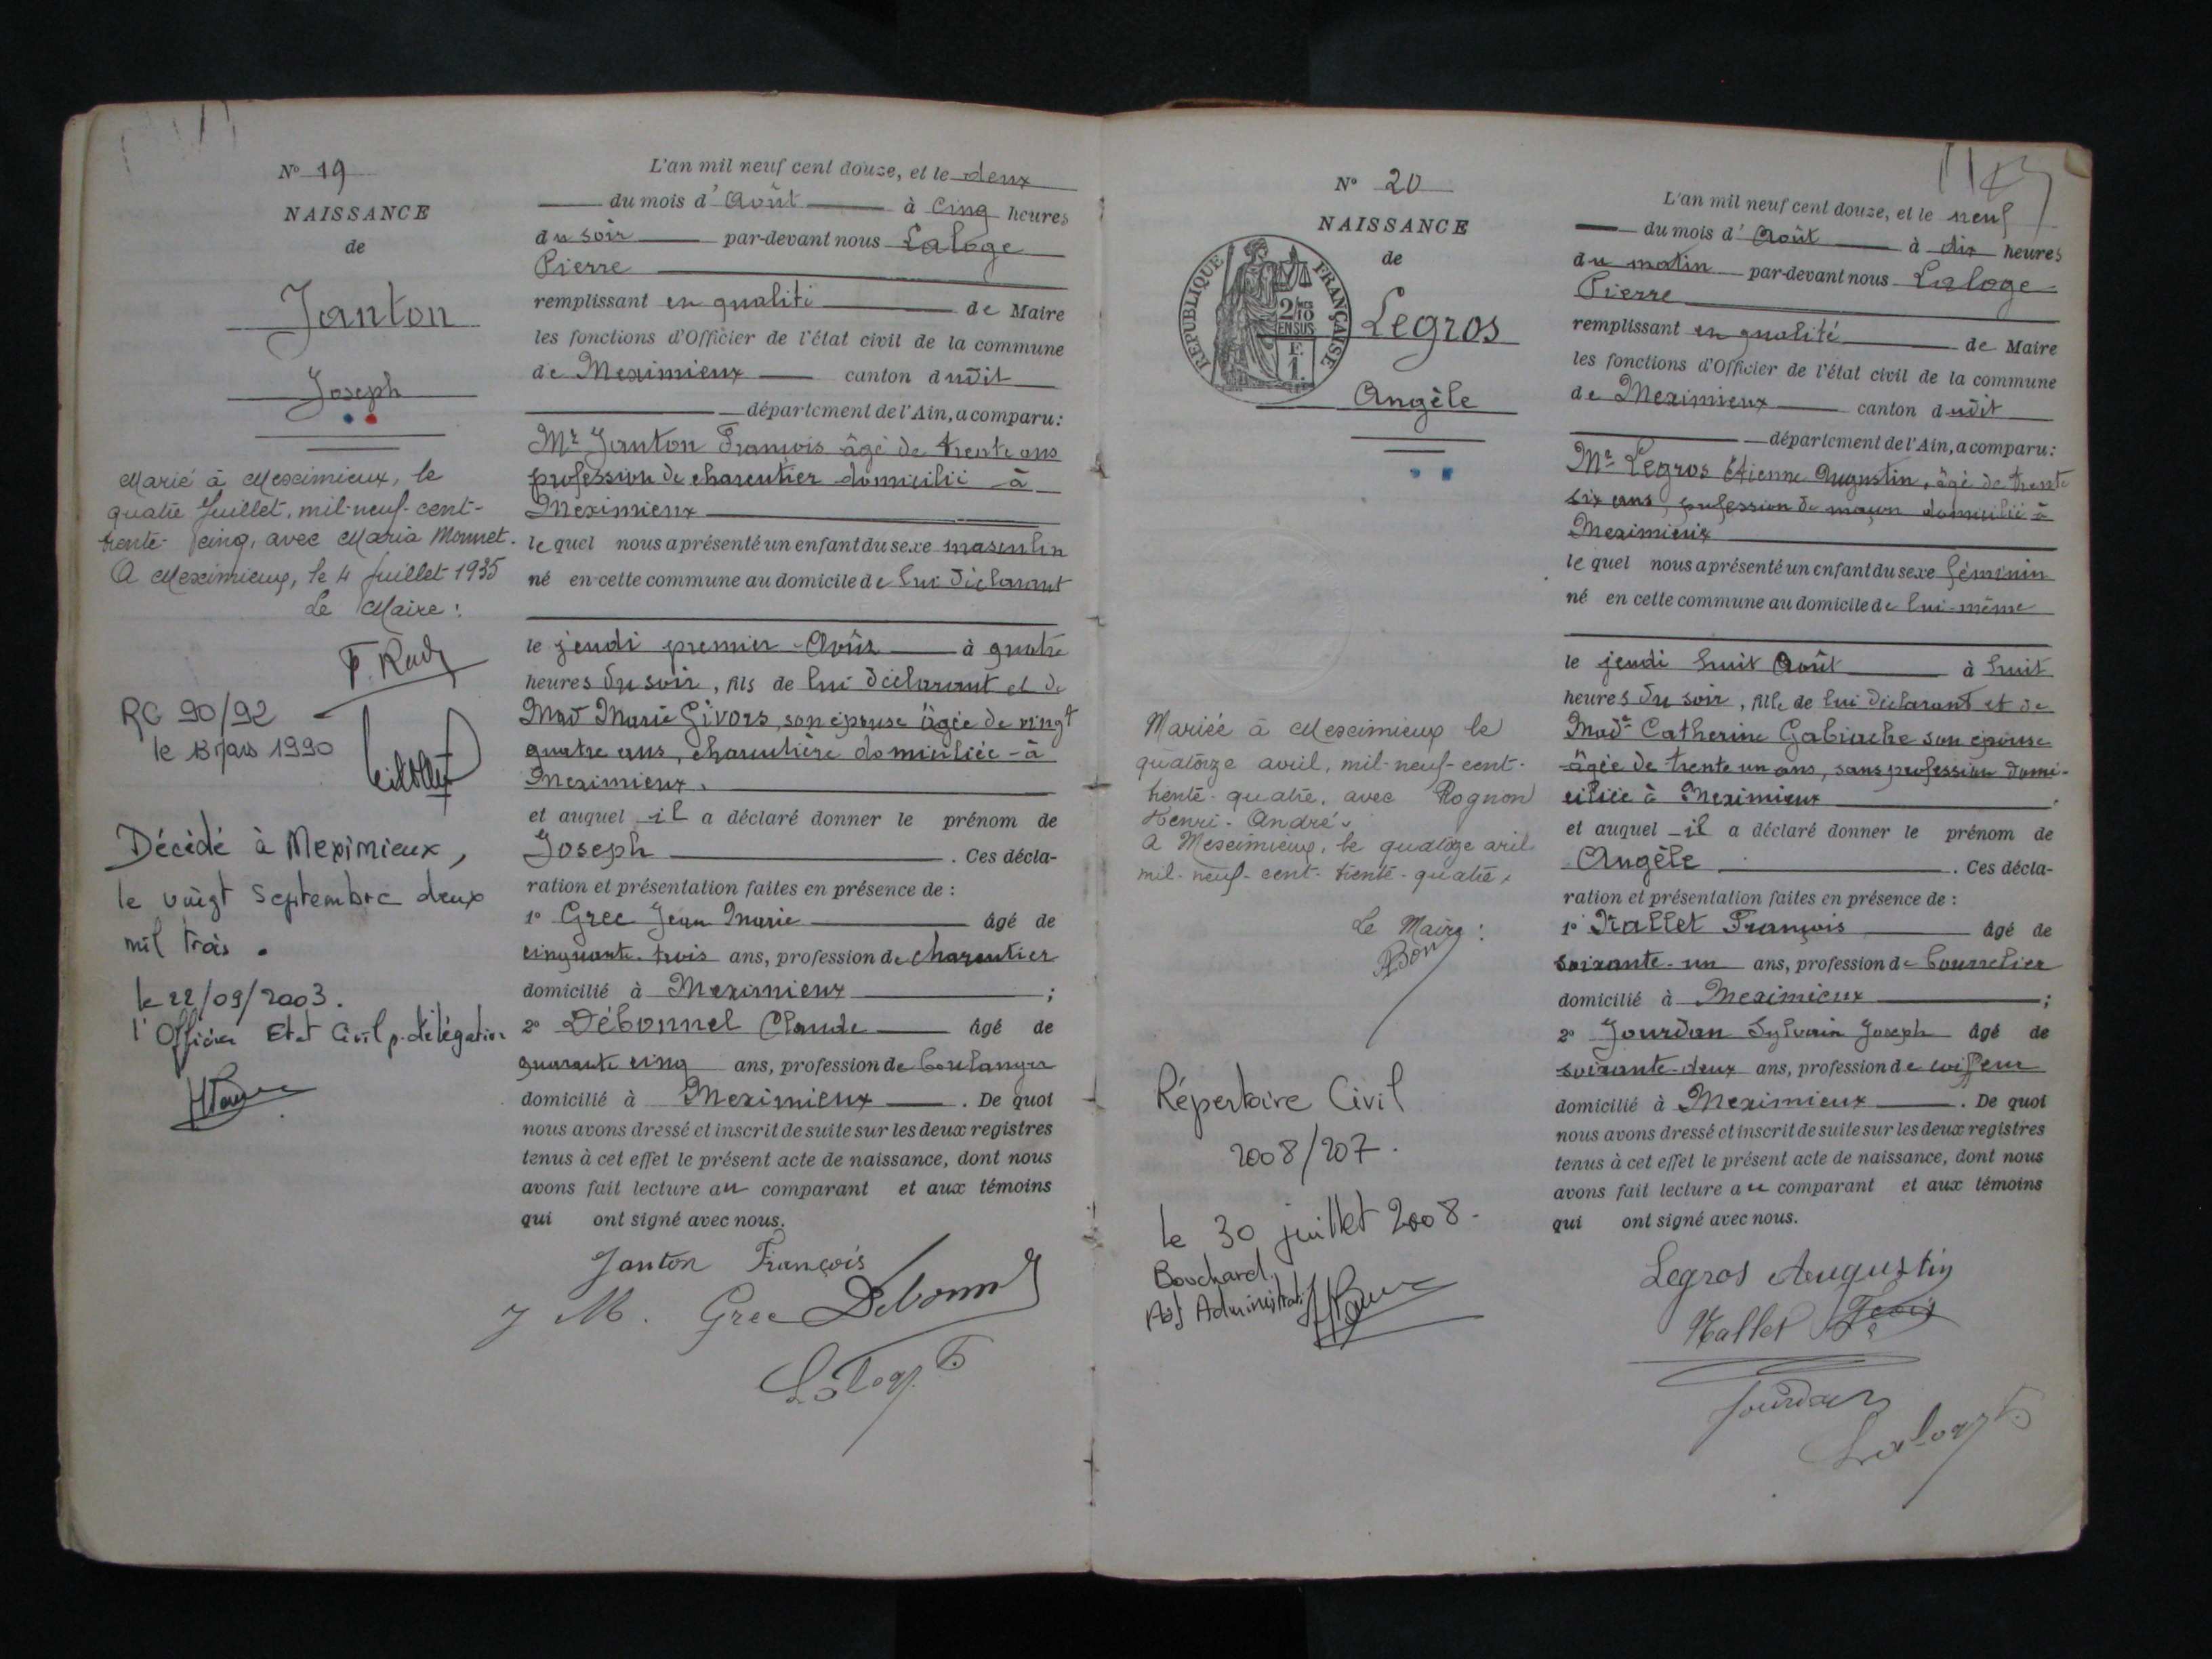 N° 19
NAISSANCE
de
Janton
Joseph
Marié à Meximieux, le
quatre Juillet, mil-neuf-cent-
trente-cinq, avec Maria Monnet.
A Meximieux, le 4 Juillet 1935
Le Maire :
RC 90/92
le 13 Mars 1990
Décédé à Meximieux,
le vingt Septembre deux
mil trois.
le 22/09/2003.
l'Officier Etat Civil p. délégation
L'an mil neuf cent douze, et le deux
du mois d'Août à cinq heures
du soir par-devant nous Laloge
Pierre
remplissant en qualité de Maire
les fonctions d'Officier de l'état civil de la commune
de Meximieux canton dudit
département de l'Ain, a comparu :
Mr Janton François âgé de trente ans
profession de charcutier domicilié à
Meximieux
lequel nous a présenté un enfant du sexe masculin
né en cette commune au domicile de lui déclarant
le jeudi premier Août à quatre
heures du soir, fils de lui déclarant et de
Mad Marie Givors, son épouse âgée de vingt
quatre ans, charcutière domiciliée à
Meximieux.
et auquel il a déclaré donner le prénom de
Joseph . Ces décla-
ration et présentation faites en présence de :
1° Grec Jean Marie âgé de
cinquante-trois ans, profession de charcutier
domicilié à Meximieux ;
2° Débonnel Claude âgé de
quarante cinq ans, profession de boulanger
domicilié à Meximieux . De quoi
nous avons dressé et inscrit de suite sur les deux registres
tenus à cet effet le présent acte de naissance, dont nous
avons fait lecture au comparant et aux témoins
qui ont signé avec nous.
Janton François
J M. Grec Debonnel
Laloge P.
N° 20
NAISSANCE
de
RÉPUBLIQUE FRANÇAISE
2/10
EN SUS
F.
1.
Legros
Angèle
Mariée à Meximieux le
quatorze avril, mil-neuf-cent-
trente-quatre, avec Rognon
Henri-André.
A Meximieux, le quatorze avril
mil-neuf-cent-trente-quatre.
Le Maire :
Répertoire Civil
2008/207.
le 30 juillet 2008.
Bouchard
L'an mil neuf cent douze, et le neuf
du mois d'Août à dix heures
du matin par-devant nous Laloge
Pierre
remplissant en qualité de Maire
les fonctions d'Officier de l'état civil de la commune
de Meximieux canton dudit
département de l'Ain, a comparu :
Mr Legros Etienne Augustin, âgé de trente
six ans, profession de maçon domicilié à
Meximieux
lequel nous a présenté un enfant du sexe féminin
né en cette commune au domicile de lui-même
le jeudi huit Août à huit
heures du soir, fille de lui déclarant et de
Made Catherine Gabiache son épouse
âgée de trente un ans, sans profession domi-
ciliée à Meximieux
et auquel il a déclaré donner le prénom de
Angèle . Ces décla-
ration et présentation faites en présence de :
1° Rallet François âgé de
soixante-un ans, profession de bourrelier
domicilié à Meximieux ;
2° Jourdan Sylvain Joseph âgé de
soixante-deux ans, profession de coiffeur
domicilié à Meximieux . De quoi
nous avons dressé et inscrit de suite sur les deux registres
tenus à cet effet le présent acte de naissance, dont nous
avons fait lecture au comparant et aux témoins
qui ont signé avec nous.
Legros Augustin
Rallet
Jourdan
Laloge P.